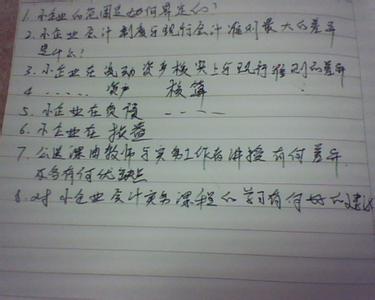 1.小企业的范围是如何界定的?
2.小企业会计制度与现行会计准则最大的差异
是什么?
3.小企业在流动资产核实上与现行准则的差异
4. ...... 资产 核算
5.小企业在负债 ----
6.小企业在损益
7.公选课由教师与实务工作者讲授有何差异
各有何优缺点
8.对小企业会计实务课程的学习有何好的建议